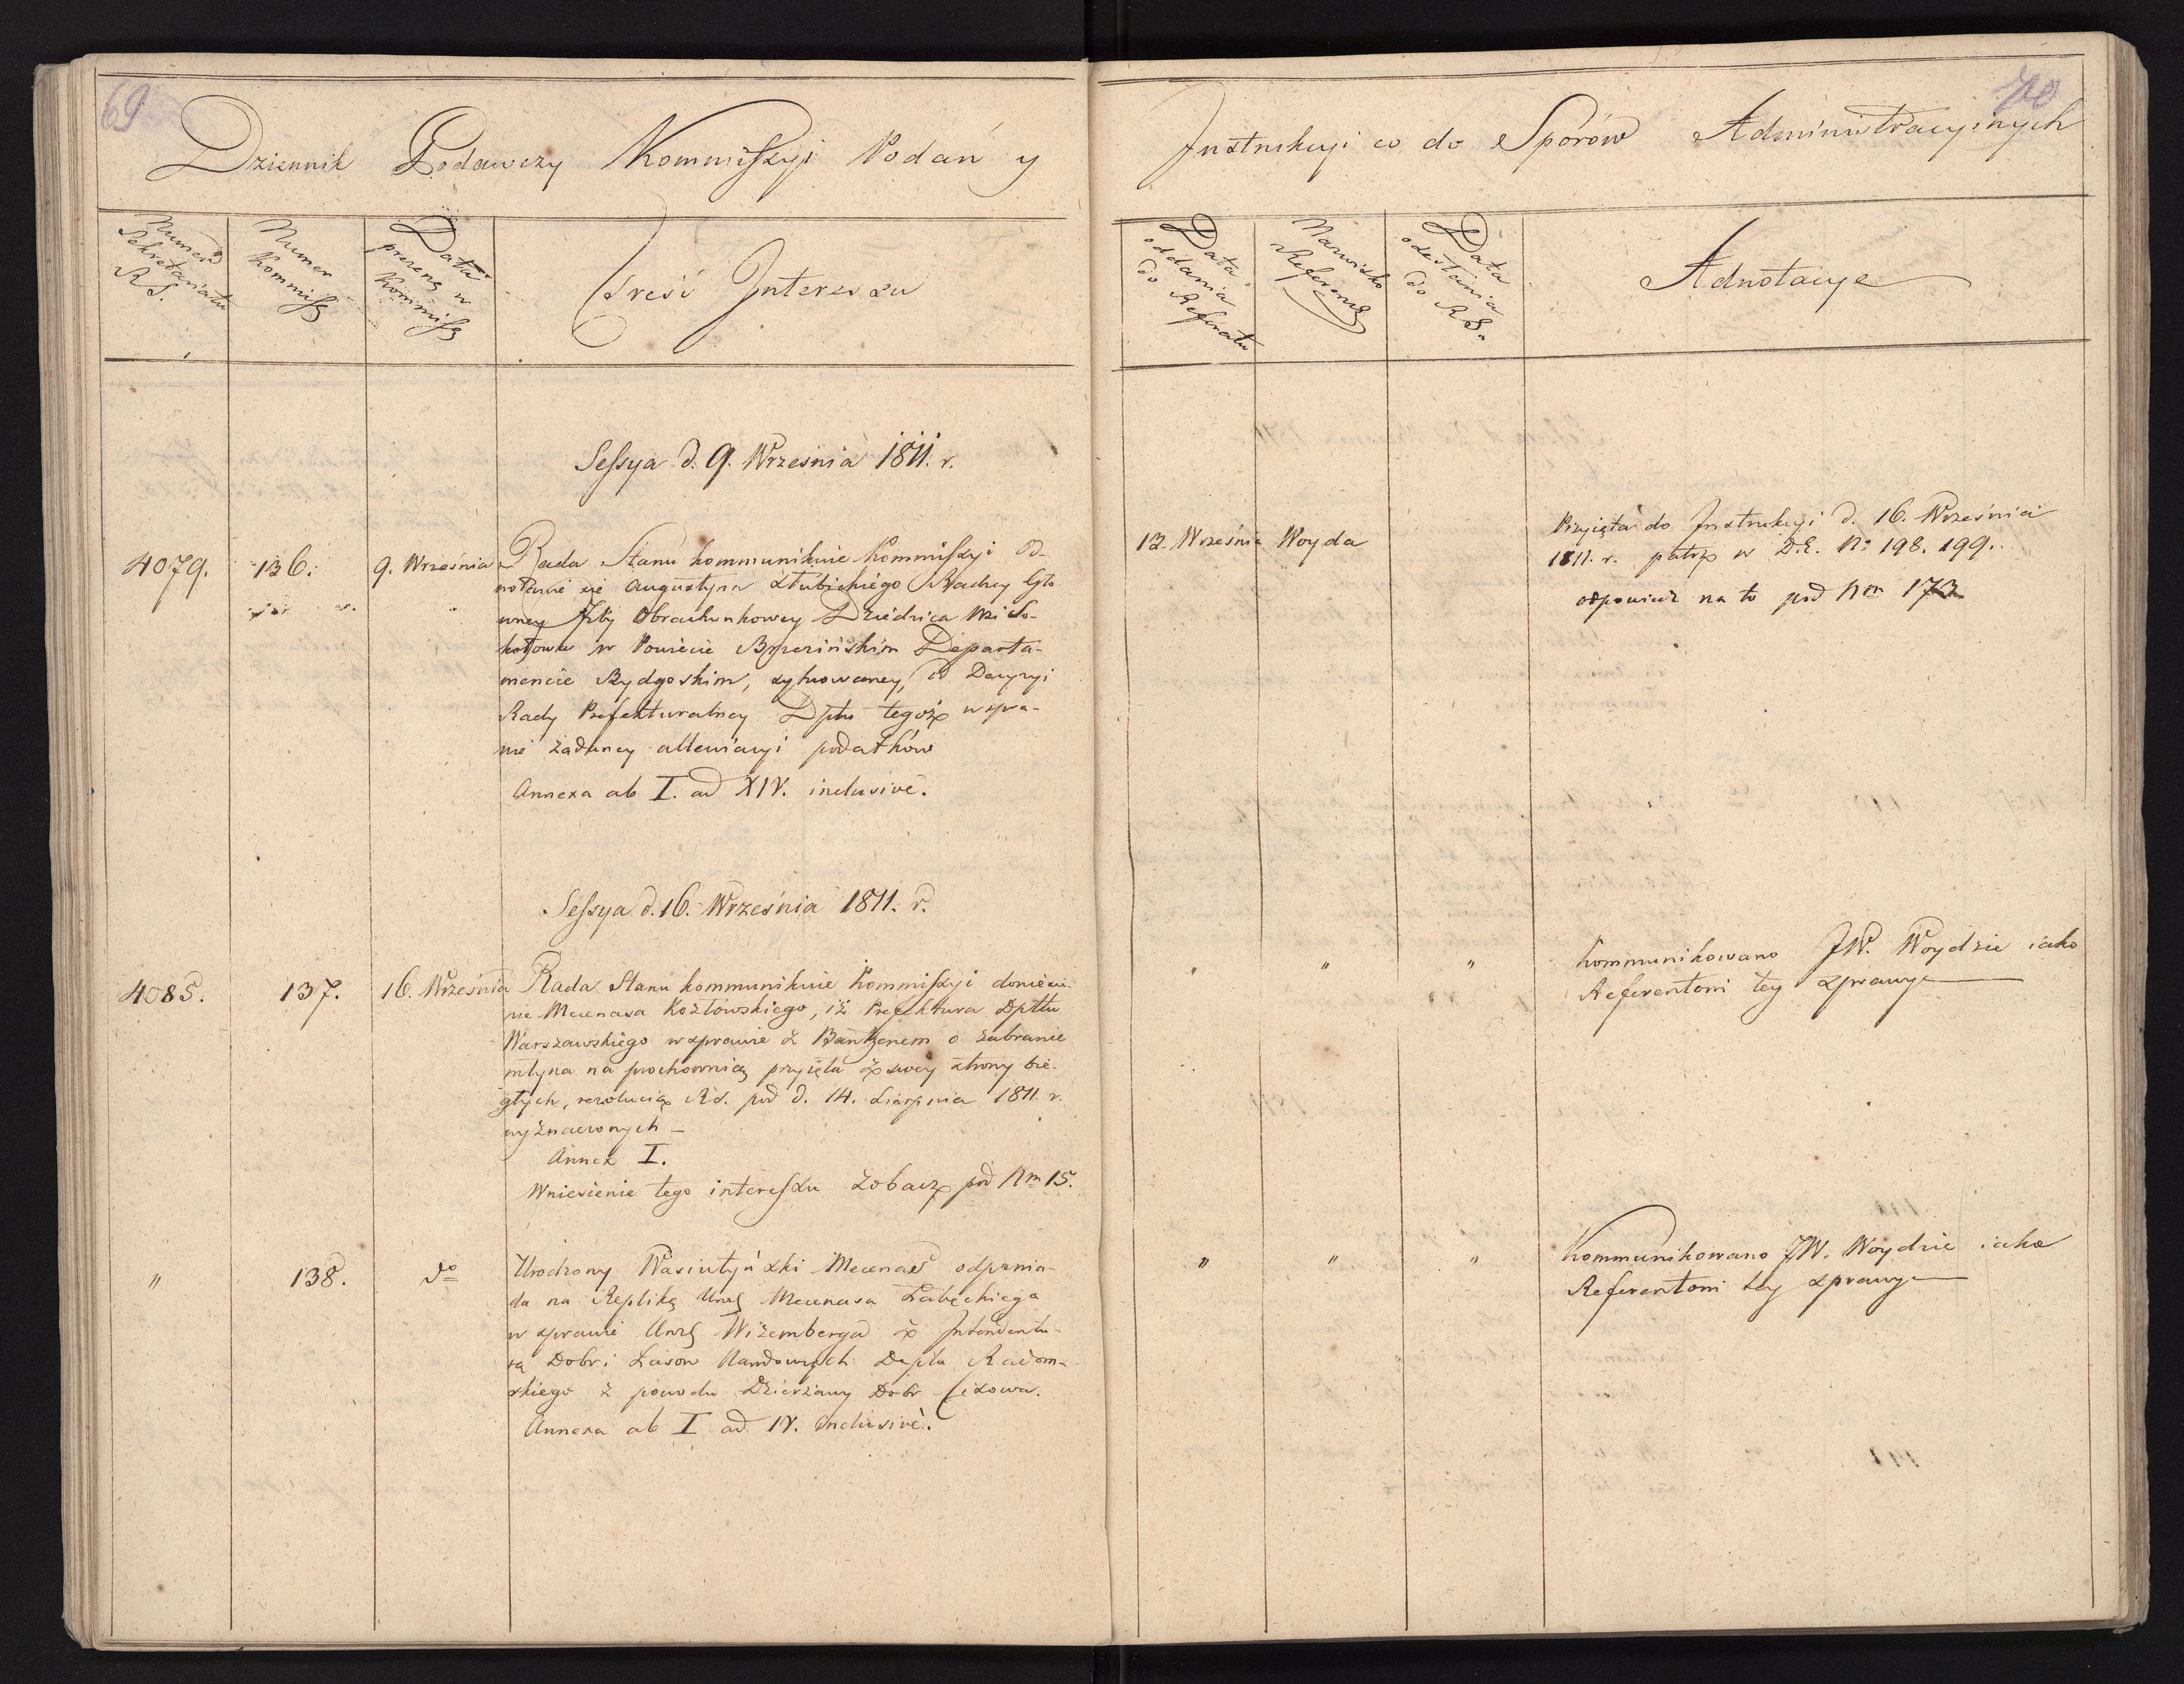 69
70
Dziennik Podawczy Kommissyi Podań y
Instrukcyi co do Sporów Administracyinych
Numer Sekretariatu R S.
Numer Kommissyi
Data prezent w Kommissyi
Treść Interessu
Data oddania do Referatu
Nazwisko Referenta
Data odesłania do R S.
Adnotacye
Sessya d. 9. Września 1811. r.
4079. 136. 9. Września Rada Stanu kommunikuie Kommissyi Od-
wołanie się Augustyna Słubickiego Radcy Głó
wney Izby Obrachunkowey Dziedzica Wsi So-
kołowa w Powiecie Brzezińskim Departa-
mencie Bydgoskim, sytuowaney, od Decyzyi
Rady Prefekturalney Dptu tegoż w spra-
wie żądaney allewiacyi podatków
Annexa ab I. ad XIV. inclusive.
12. Września Woyda
Przyięta do Instrukcyi d. 16. Września
1811. r. patrz w D.E. No 198. 199.
odpowiedź na to pod Nm 173
Sessya d. 16. Września 1811. r.
4085. 137. 16. Września Rada Stanu kommunikuie Kommissyi doniesie-
nie Mecenasa Kozłowskiego, iż Prefektura Dpttu
Warszawskiego w sprawie z Bantzenem o zabranie
młyna na prochownią przyięła z swey strony bie-
głych, rezolucią RS. pod d. 14. Sierpnia 1811. r.
wyznaczonych —
Annex I.
Wniesienie tego interessu zobacz pod Nm 15.
" " "
Kommunikowano JW. Woydzie iako
Referentowi tey sprawy
" 138. do Urodzony Wasiutyński Mecenas odpowia-
da na Replikę Urog Mecenasa Łabęckiego
w sprawie Urog Wizemberga z Intendentu-
rą Dobr i Lasow Narodowych Deptu Radom-
skiego z powodu Dzierżawy Dobr Cisowa.
Annexa ab I ad IV. inclusive.
" " "
Kommunikowano JW. Woydzie iako
Referentowi tey sprawy